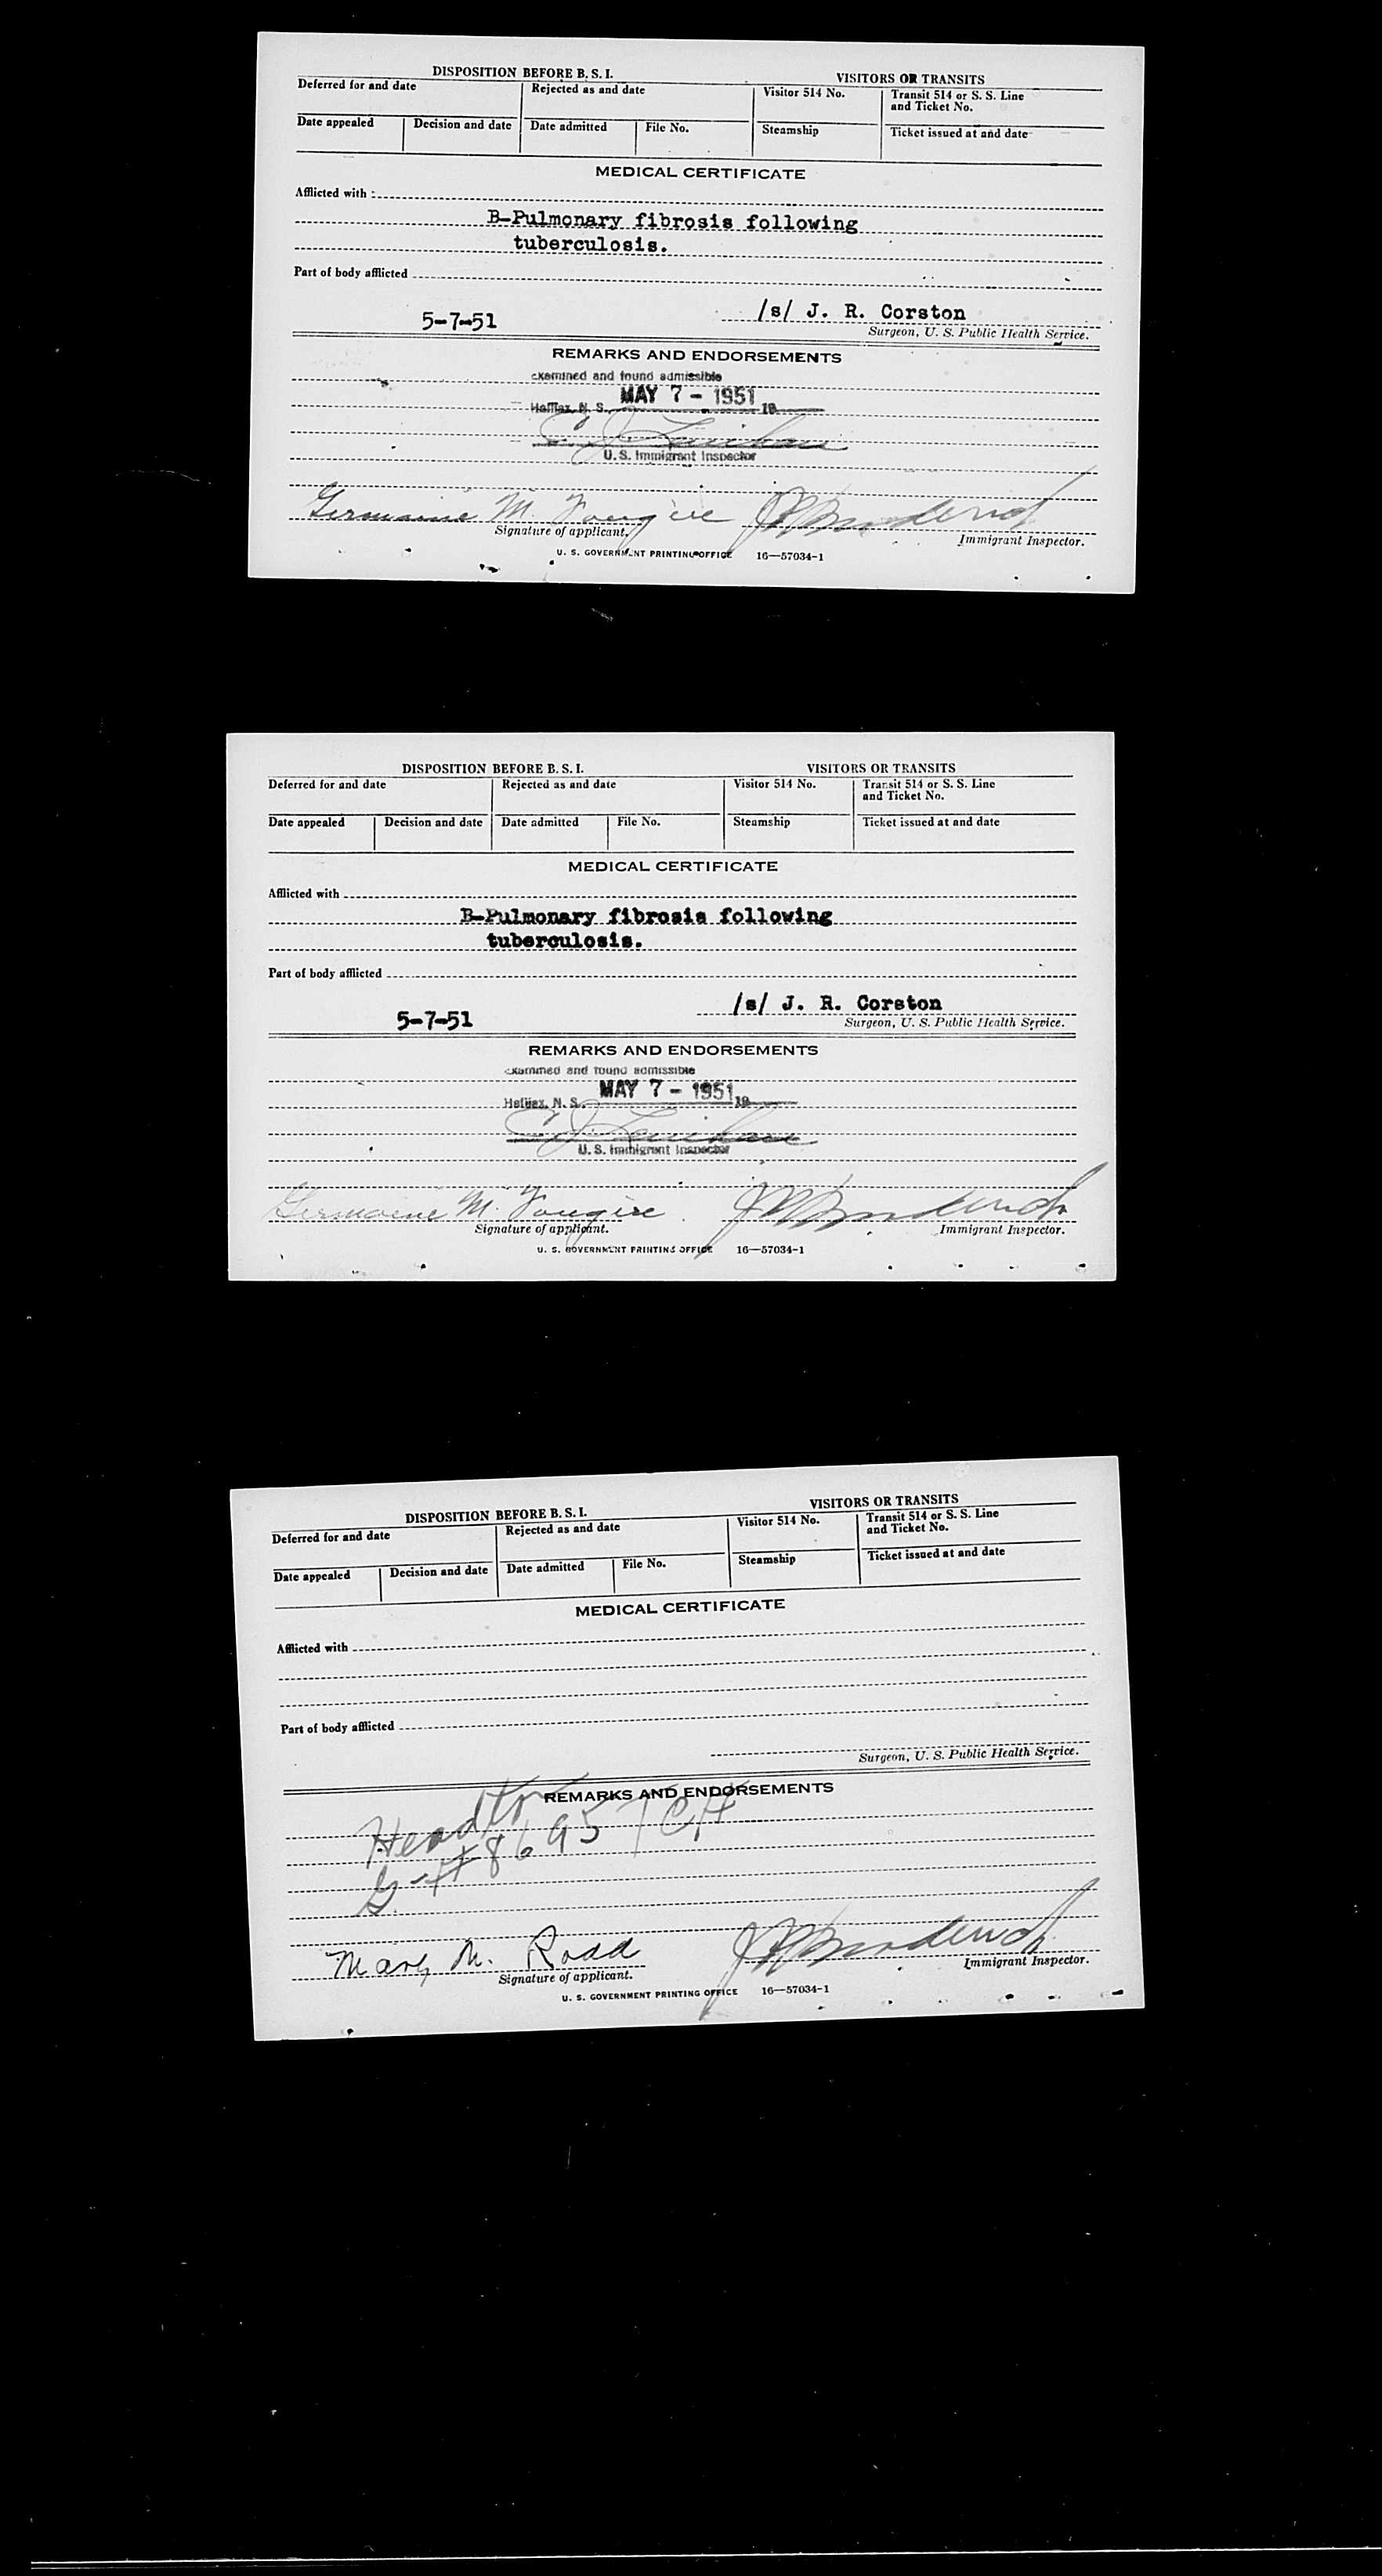 DISPOSITION BEFORE B. S. I. VISITORS OR TRANSITS
Deferred for and date Rejected as and date Visitor 514 No. Transit 514 or S. S. Line
and Ticket No.
Date appealed Decision and date Date admitted File No. Steamship Ticket issued at and date
MEDICAL CERTIFICATE
Afflicted with
B-Pulmonary fibrosis following
tuberculosis.
Part of body afflicted
5-7-51 /s/ J. R. Corston
Surgeon, U. S. Public Health Service.
REMARKS AND ENDORSEMENTS
examined and found admissible
Halifax, N. S. MAY 7 - 1951 19
U. S. Immigrant Inspector
Germaine M. Fougere
Signature of applicant. Immigrant Inspector.
U. S. GOVERNMENT PRINTING OFFICE 16—57034-1
DISPOSITION BEFORE B. S. I. VISITORS OR TRANSITS
Deferred for and date Rejected as and date Visitor 514 No. Transit 514 or S. S. Line
and Ticket No.
Date appealed Decision and date Date admitted File No. Steamship Ticket issued at and date
MEDICAL CERTIFICATE
Afflicted with
B-Pulmonary fibrosis following
tuberculosis.
Part of body afflicted
5-7-51 /s/ J. R. Corston
Surgeon, U. S. Public Health Service.
REMARKS AND ENDORSEMENTS
examined and found admissible
Halifax, N. S. MAY 7 - 1951 19
U. S. Immigrant Inspector
Germaine M. Fougere
Signature of applicant. Immigrant Inspector.
U. S. GOVERNMENT PRINTING OFFICE 16—57034-1
DISPOSITION BEFORE B. S. I. VISITORS OR TRANSITS
Deferred for and date Rejected as and date Visitor 514 No. Transit 514 or S. S. Line
and Ticket No.
Date appealed Decision and date Date admitted File No. Steamship Ticket issued at and date
MEDICAL CERTIFICATE
Afflicted with
Part of body afflicted
Surgeon, U. S. Public Health Service.
REMARKS AND ENDORSEMENTS
Mary M. Rodd
Signature of applicant. Immigrant Inspector.
U. S. GOVERNMENT PRINTING OFFICE 16—57034-1